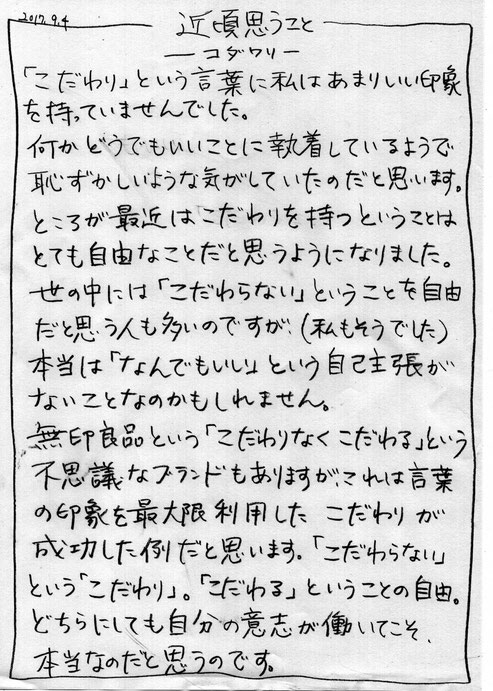 2017.9.4
近頃思うこと
ーコダワリー
「こだわり」という言葉に私はあまりいい印象
を持っていませんでした。
何かどうでもいいことに執着しているようで
恥ずかしいような気がしていたのだと思います。
ところが最近はこだわりを持つということは
とても自由なことだと思うようになりました。
世の中には「こだわらない」ということを自由
だと思う人も多いのですが、(私もそうでした)
本当は「なんでもいい」という自己主張が
ないことなのかもしれません。
無印良品という「こだわりなくこだわる」という
不思議なブランドもありますが、これは言葉
の印象を最大限利用した こだわりが
成功した例だと思います。「こだわらない」
という「こだわり」。「こだわる」ということの自由。
どちらにしても自分の意志が働いてこそ、
本当なのだと思うのです。